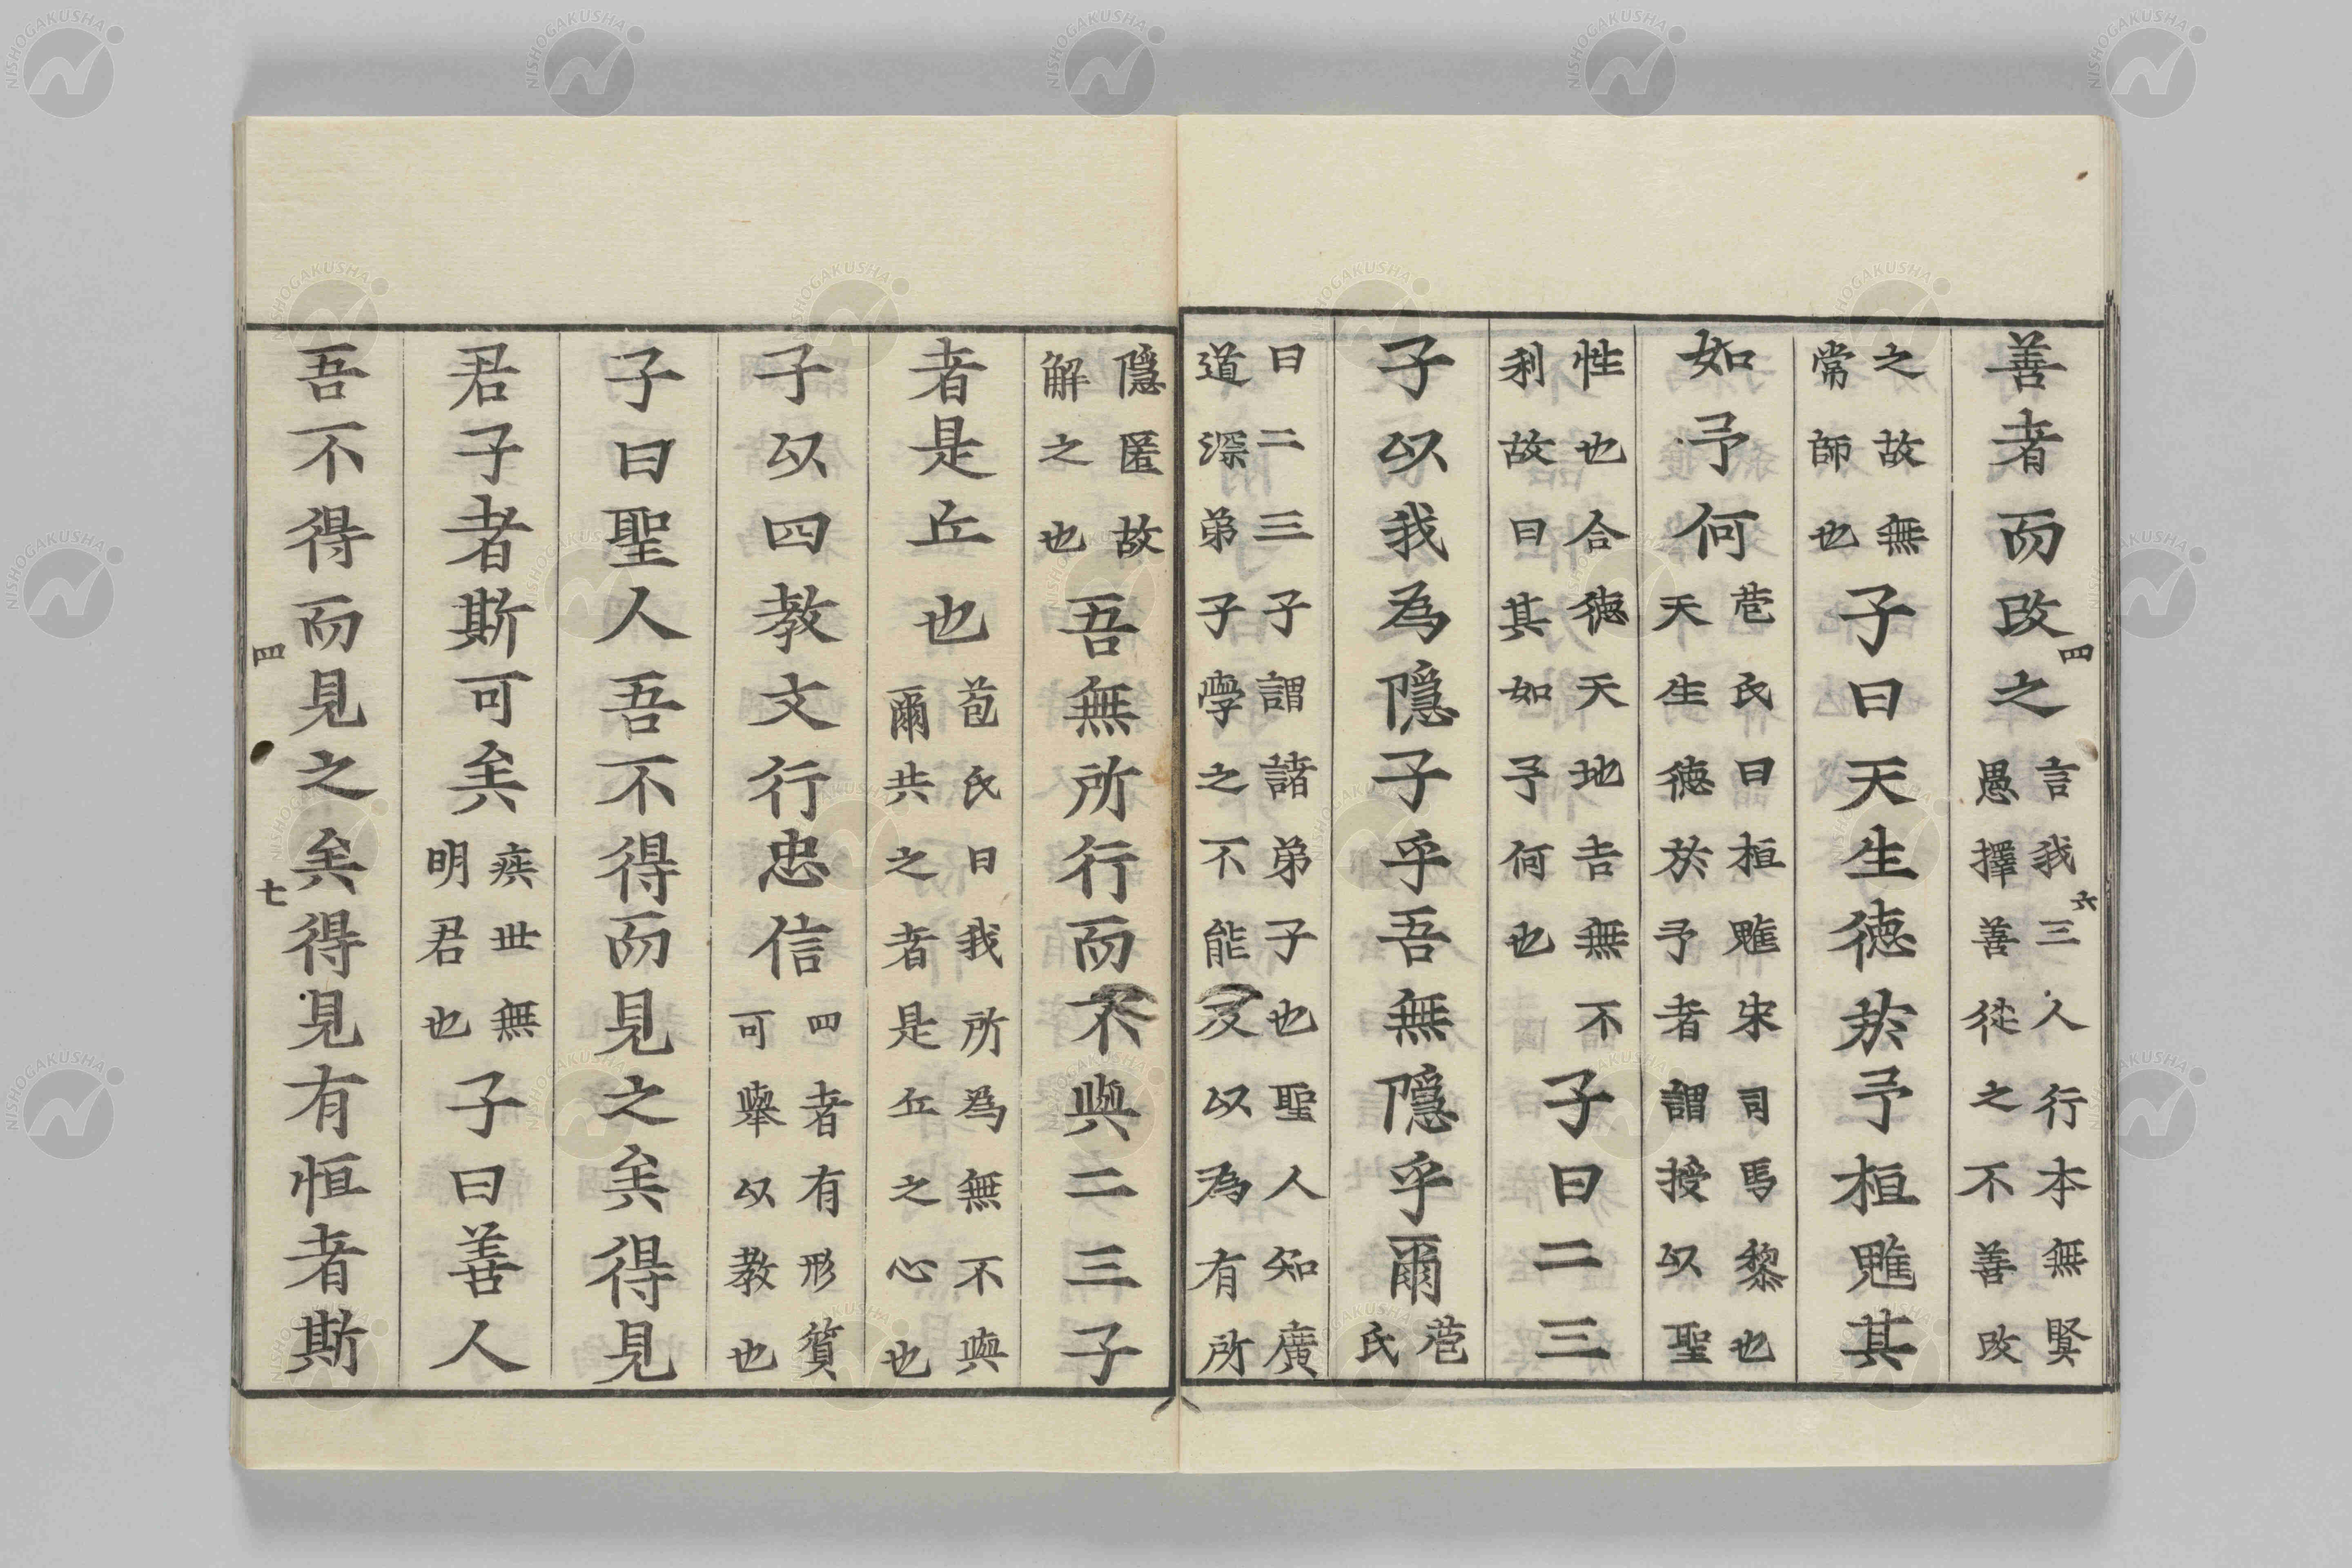 善者而改之言我三人行本無賢愚擇善從之不善改
之故無常師也子曰天生徳於予桓魋其
如予何苞氏曰桓魋宋司馬黎也天生徳於予者謂授以聖
性也合徳天地吉無不利故曰其如予何也子曰二三
子以我為隱子乎吾無隱乎爾苞氏
曰二三子謂諸弟子也聖人知廣道深弟子學之不能及以為有所
四 六
隱匿故解之也吾無所行而不與二三子
者是丘也苞氏曰我所為無不與爾共之者是丘之心也
子以四教文行忠信四者有形質可舉以教也
子曰聖人吾不得而見之矣得見
君子者斯可矣疾世無明君也子曰善人
吾不得而見之矣得見有恒者斯
四 七
NISHOGAKUSHA